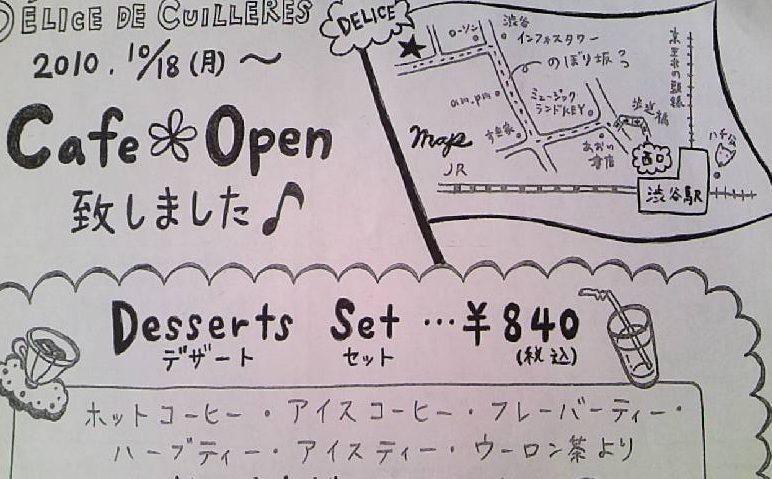 DÉLICE DE CUILLÈRES
2010. 10/18 (月) ～
Cafe Open
致しました♪
DELICE
ローソン
渋谷
インフォスタワー
のぼり坂
am.pm
ミュージック
ランドKEY
歩道橋
ハチ公
Map
あおい
書店
西口
JR
渋谷駅
Desserts Set …¥840
デザート セット (税込)
ホットコーヒー・アイスコーヒー・フレーバーティー・
ハーブティー・アイスティー・ウーロン茶より